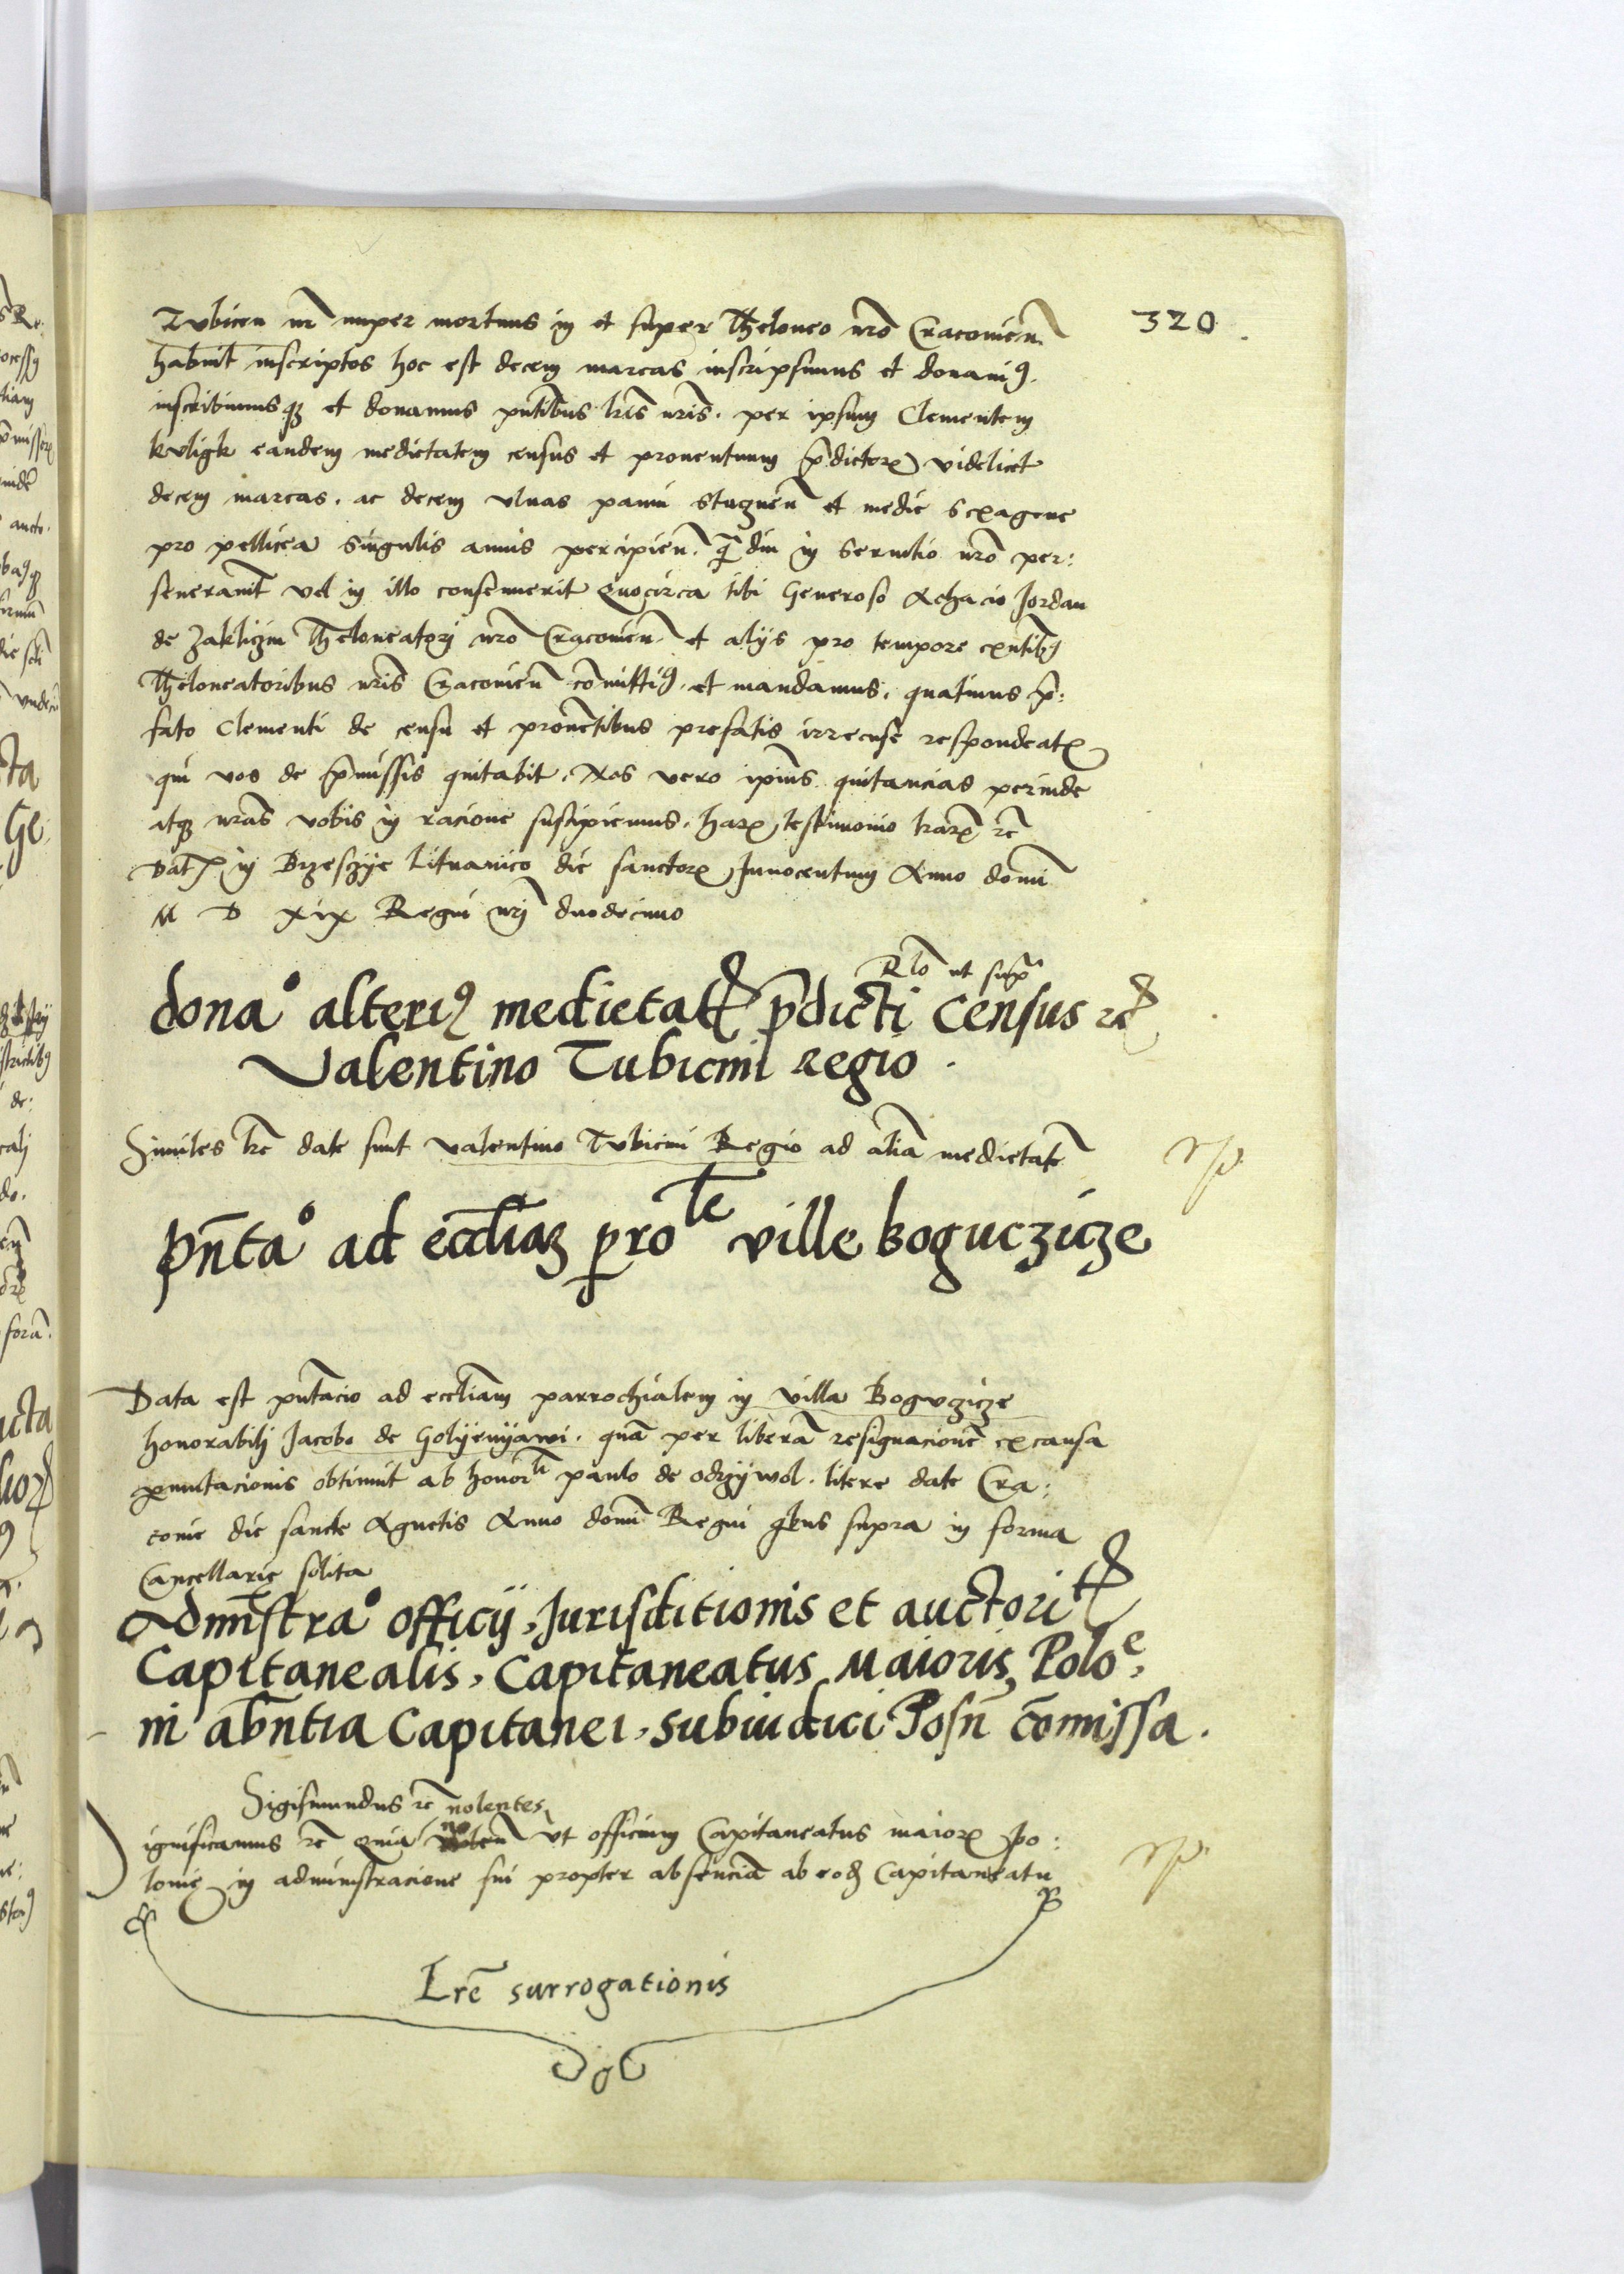 320
Tubicen nr̄ nuper mortuus in et super Theloneo nrō Cracovien̄
habuit inscriptos hoc est decem marcas inscripsimus et donavimꝰ.
inscribimusqꝫ et donamus pn̄tibus lrīs nrīs. per ipsum Clementem
kuligk eandem medietatem census et proventuum p̄dictorꝝ videlicet
decem marcas. ac decem ulnas panni stuznen̄ et medie sexagene
pro pellicea singulis annis percipien̄. q̄ diu in servitio nrō per:
severavit vel in illo consenuerit Quocirca tibi Generoso Achacio Jordan
de Zakliczin Theloneatorj nrō Cracovien̄. et alijs pro tempore exn̄tibꝰ
Theloneatoribus nrīs Cracovien̄ com̄ittimꝰ. et mandamus. quatinus p̄:
fato Clementi de censu et proven̄tibus prefatis irrecuse respondeatꝭ
qui vos de p̄missis quitabit. Nos vero ipius quitancias perinde
atqꝫ nrās vobis in racione suscipiemus. harꝝ testimonio lrarꝝ ꝛc̄
Datꝭ in Brzesczye Lituanico die sanctorꝝ Innocentum Anno domī
M D xix Regni nrj̄ duodecimo
Rlō ut supᵃ
donaᵒ alteriꝰ medietatꝭ p̄dicti census ꝛc̄
Valentino Tubicini regio.
Similes lrē date sunt valentino Tubicini Regio ad aliā medietatē
pn̄taᵒ ad eccliaꝫ ꝑroˡᵉ ville boguczicze
Data est pn̄tacio ad eccl̄iam parrochialem in villa Boguczicze
honorabilj Jacobo de Golyenyawi. quā per liberā resignacionē ex causa
ꝑmutacionis obtinuit ab honorˡⁱ paulo de odrzywol. litere date Cra:
covie die sancte Agnetis Anno domī Regni qbus supra in forma
Cancellarie solita
Admīstraᵒ officij, Jurisditionis et auctoritꝭ
Capitanealis, Capitaneatus Maioris Poloᵉ,
in abn̄tia Capitanei, subiudici Posn̄ com̄issa.
Sigismundus ꝛc̄ nolentes
ignificamus ꝛc̄ Quia ut officium Capitaneatus maiorꝭ po:
lonie in administracione sui propter absenciā ab eodꝫ Capitaneatu
Lrē surrogationis